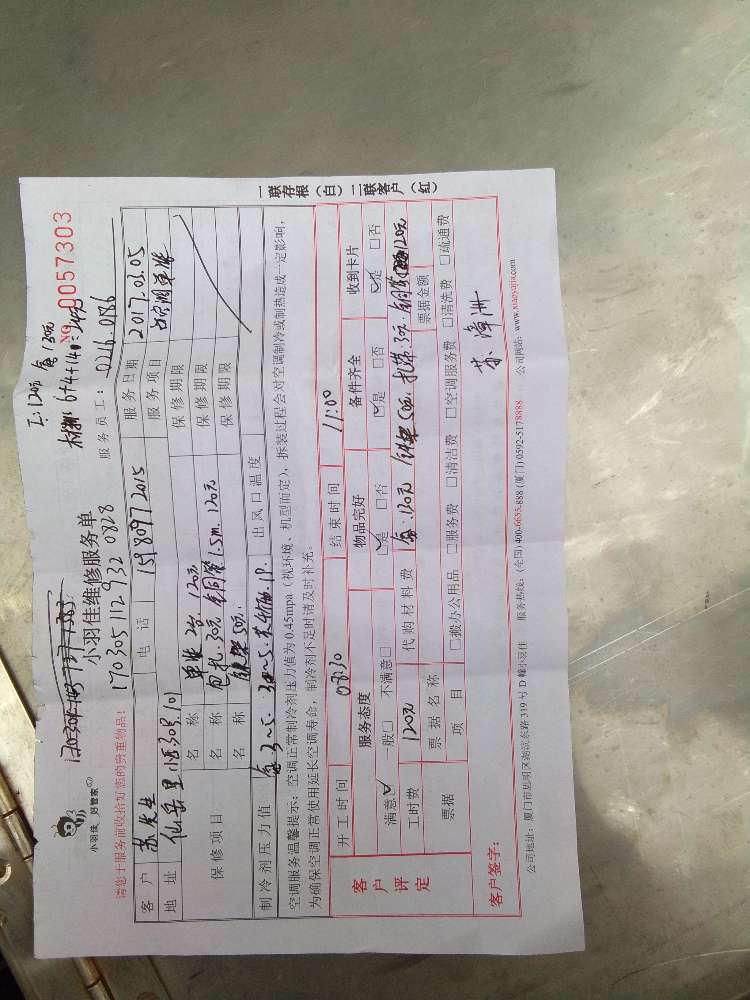 工:120元 包:130元
小羽佳 好管家
小羽佳维修服务单
No 0057303
170305112932 0828
服务员工: 0216 0186
请您于服务前收拾好您的贵重物品!
客户 苏先生 电话 15980972015 服务日期 2017.03.05
地址 仙岳里118号301 服务项目
保修项目 名称 单装2台 120元 保修期限
名称 包扎30元 铜管1.5m 120元 保修期限
名称 保修期限
制冷剂压力值 出风口温度
空调服务温馨提示:空调正常制冷剂压力值为0.45mpa(视环境、机型而定),拆装过程会对空调制冷或制热造成一定影响,
为确保空调正常使用延长空调寿命,制冷剂不足时请及时补充。
客户评定
开工时间 08:30 结束时间 11:00
服务态度 物品完好 备件齐全 收到卡片
满意☑ 一般□ 不满意□ ☑是 □否 ☑是 □否 ☑是 □否
工时费 120元 代购材料费 票据金额
票据 票据名称
项目 □搬办公用品 □服务费 □清洁费 □空调服务费 □清洗费 □疏通费
客户签字: 苏漳洲
公司地址:厦门市思明区湖滨东路319号D幢小羽佳 服务热线:(全国)400-6655-888 (厦门)0592-5178888 公司网站:www.xiaoyujia.com
一联存根(白)二联客户(红)